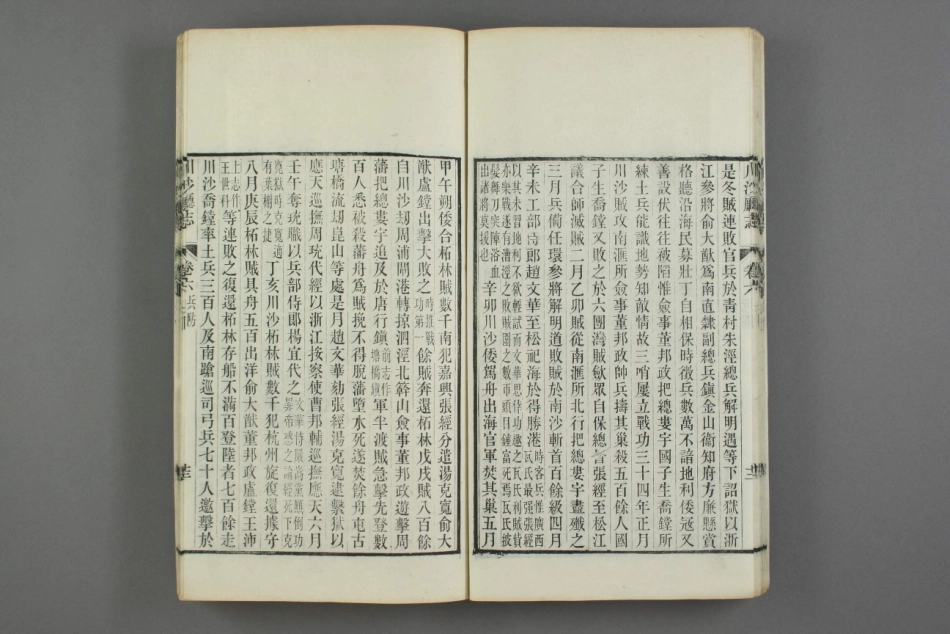 是冬賊連敗官兵於靑村朱涇總兵解明遇等下詔獄以浙
江參將俞大猷爲南直隷副總兵鎭金山衞知府方廉懸賞
格聽沿海民募壯丁自相保時徵兵數萬不諳地利倭冦又
善設伏往往被陷惟僉事董邦政把總婁宇國子生喬鏜所
練土兵能識地勢知敵情故三哨屢立戰功三十四年正月
川沙賊攻南滙所僉事董邦政帥兵擣其巢殺五百餘人國
子生喬鏜又敗之於六團灣賊歛眾自保總督張經至松江
議合師滅賊二月乙卯賊從南滙所北行把總婁宇盡殲之
三月兵備任環參將解明道敗賊於南沙斬首百餘級四月
辛未工部侍郎趙文華至松祀海於得勝港
時客兵惟廣西瓦氏最强張經
以其未習地利不欲輕試而文華思倖功遽
出諸將莫援也
辛卯川沙倭駕舟出海官軍焚其巢五月
川沙廳志
卷六
甲午朔倭合柘林賊數千南犯嘉興張經分遣湯克寬俞大
猷盧鏜出擊大敗之
時推戰功第一
餘賊奔還柘林戊戌賊八百餘
自川沙刧周浦閘港轉掠泗涇北簳山僉事董邦政遊擊周
藩把總婁宇追及於唐行鎭
前志作塘橋鎭
軍半渡賊急擊先登數
百人悉被殺藩舟爲賊挽不得脫藩墮水死遂焚餘舟屯古
塘橋流刧崑山等處是月趙文華劾張經湯克寬逮繫獄以
應天巡撫周珫代經以浙江按察使曹邦輔巡撫應天六月
壬午奪珫職以兵部侍郎楊宜代之
丁亥川沙柘林賊數千犯杭州旋復還據守
八月庚辰柘林賊具舟五百出洋俞大猷董邦政盧鏜王沛
上志作王世科
等連敗之復還柘林存船不滿百登陸者七百餘走
川沙喬鏜率土兵三百人及南蹌巡司弓兵七十人邀擊於
川沙廳志
卷六
兵防